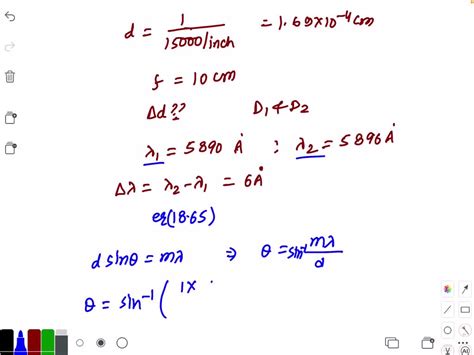 d = 1 / 15000/inch = 1.69×10⁻⁴cm
f = 10 cm
Δd ?? D₁ & D₂
λ₁ = 5890 Å ; λ₂ = 5896 Å
Δλ = λ₂ - λ₁ = 6Å
eq(18.65)
d sinθ = mλ ⇒ θ = sin⁻¹ mλ/d
θ = sin⁻¹ ( 1×